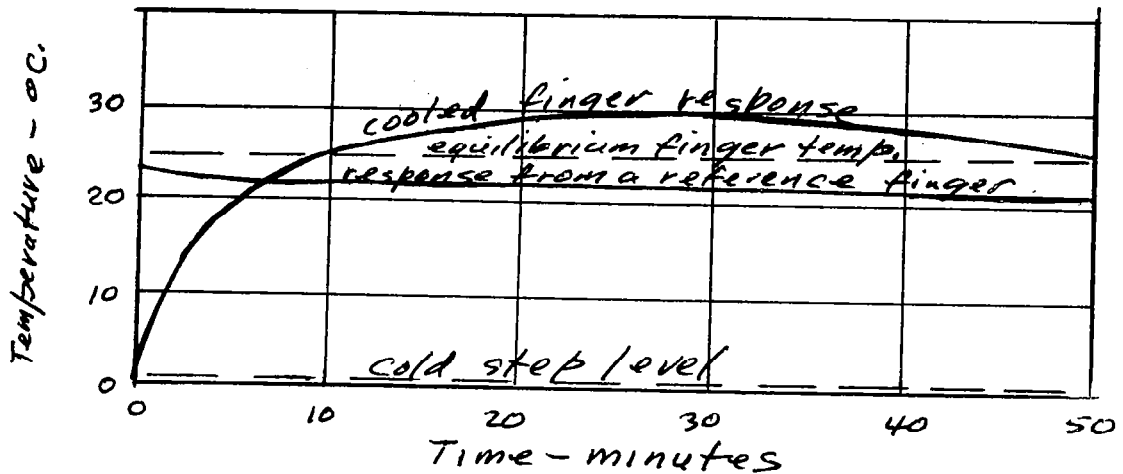 Temperature - °C.
30
20
10
0
cooled finger response
equilibrium finger temp.
response from a reference finger
cold step level
0 10 20 30 40 50
Time - minutes